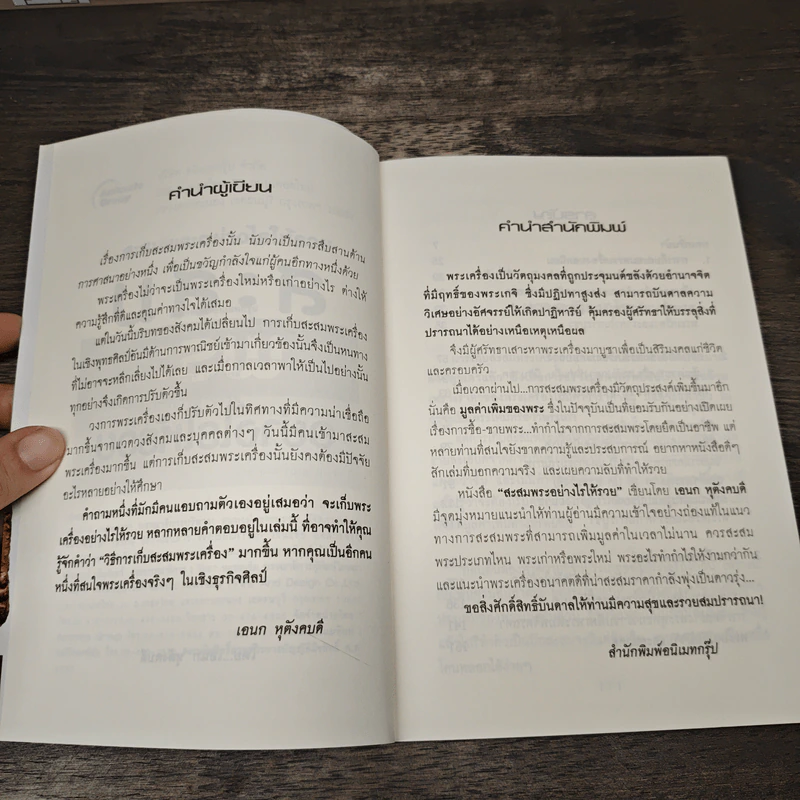 คำนำผู้เขียน
เรื่องการเก็บสะสมพระเครื่องนั้น นับว่าเป็นการสืบสานด้าน
การศาสนาอย่างหนึ่ง เพื่อเป็นขวัญกำลังใจแก่ผู้คนอีกทางหนึ่งด้วย
พระเครื่องไม่ว่าจะเป็นพระเครื่องใหม่หรือเก่าอย่างไร ต่างให้
ความรู้สึกที่ดีและคุณค่าทางใจได้เสมอ
แต่ในวันนี้บริบทของสังคมได้เปลี่ยนไป การเก็บสะสมพระเครื่อง
ในเชิงพุทธศิลป์อันมีด้านการพาณิชย์เข้ามาเกี่ยวข้องนั้นจึงเป็นหนทาง
ที่ไม่อาจจะหลีกเลี่ยงไปได้เลย และเมื่อกาลเวลาพาให้เป็นไปอย่างนั้น
ทุกอย่างจึงเกิดการปรับตัวขึ้น
วงการพระเครื่องเองก็ปรับตัวไปในทิศทางที่มีความน่าเชื่อถือ
มากขึ้นจากแวดวงสังคมและบุคคลต่างๆ วันนี้มีคนเข้ามาสะสม
พระเครื่องมากขึ้น แต่การเก็บสะสมพระเครื่องนั้นยังคงต้องมีปัจจัย
อะไรหลายอย่างให้ศึกษา
คำถามหนึ่งที่มักมีคนแอบถามตัวเองอยู่เสมอว่า จะเก็บพระ
เครื่องอย่างไรให้รวย หลากหลายคำตอบอยู่ในเล่มนี้ ที่อาจทำให้คุณ
รู้จักคำว่า “วิธีการเก็บสะสมพระเครื่อง” มากขึ้น หากคุณเป็นอีกคน
หนึ่งที่สนใจพระเครื่องจริงๆ ในเชิงธุรกิจศิลป์
เอนก หุตังคบดี
คำนำสำนักพิมพ์
พระเครื่องเป็นวัตถุมงคลที่ถูกประจุมนต์ขลังด้วยอำนาจจิต
ที่มีฤทธิ์ของพระเกจิ ซึ่งมีปฏิปทาสูงส่ง สามารถบันดาลความ
วิเศษอย่างอัศจรรย์ให้เกิดปาฏิหาริย์ คุ้มครองผู้ศรัทธาให้บรรลุสิ่งที่
ปรารถนาได้อย่างเหนือเหตุเหนือผล
จึงมีผู้ศรัทธาเสาะหาพระเครื่องมาบูชาเพื่อเป็นสิริมงคลแก่ชีวิต
และครอบครัว
เมื่อเวลาผ่านไป...การสะสมพระเครื่องมีวัตถุประสงค์เพิ่มขึ้นมาอีก
นั่นคือ มูลค่าเพิ่มของพระ ซึ่งในปัจจุบันเป็นที่ยอมรับกันอย่างเปิดเผย
เรื่องการซื้อ-ขายพระ...ทำกำไรจากการสะสมพระโดยยึดเป็นอาชีพ แต่
หลายท่านที่สนใจยังขาดความรู้และประสบการณ์ อยากหาหนังสือดีๆ
สักเล่มที่บอกความจริง และเผยความลับที่ทำให้รวย
หนังสือ “สะสมพระอย่างไรให้รวย” เขียนโดย เอนก หุตังคบดี
มีจุดมุ่งหมายแนะนำให้ท่านผู้อ่านมีความเข้าใจอย่างถ่องแท้ในแนว
ทางการสะสมพระที่สามารถเพิ่มมูลค่าในเวลาไม่นาน ควรสะสม
พระประเภทไหน พระเก่าหรือพระใหม่ พระอะไรทำกำไรให้งามกว่ากัน
และแนะนำพระเครื่องอนาคตดีที่น่าสะสมราคากำลังพุ่งเป็นดาวรุ่ง...
ขอสิ่งศักดิ์สิทธิ์บันดาลให้ท่านมีความสุขและรวยสมปรารถนา!
สำนักพิมพ์อนิเมทกรุ๊ป